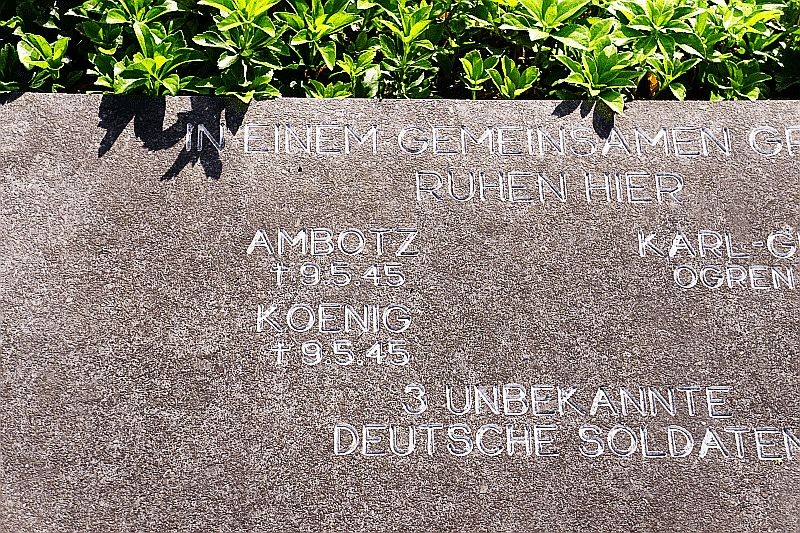 IN EINEM GEMEINSAMEN GR
RUHEN HIER
AMBOTZ
† 9.5.45
KARL-G
OGREN
KOENIG
† 9.5.45
3 UNBEKANNTE
DEUTSCHE SOLDATEN